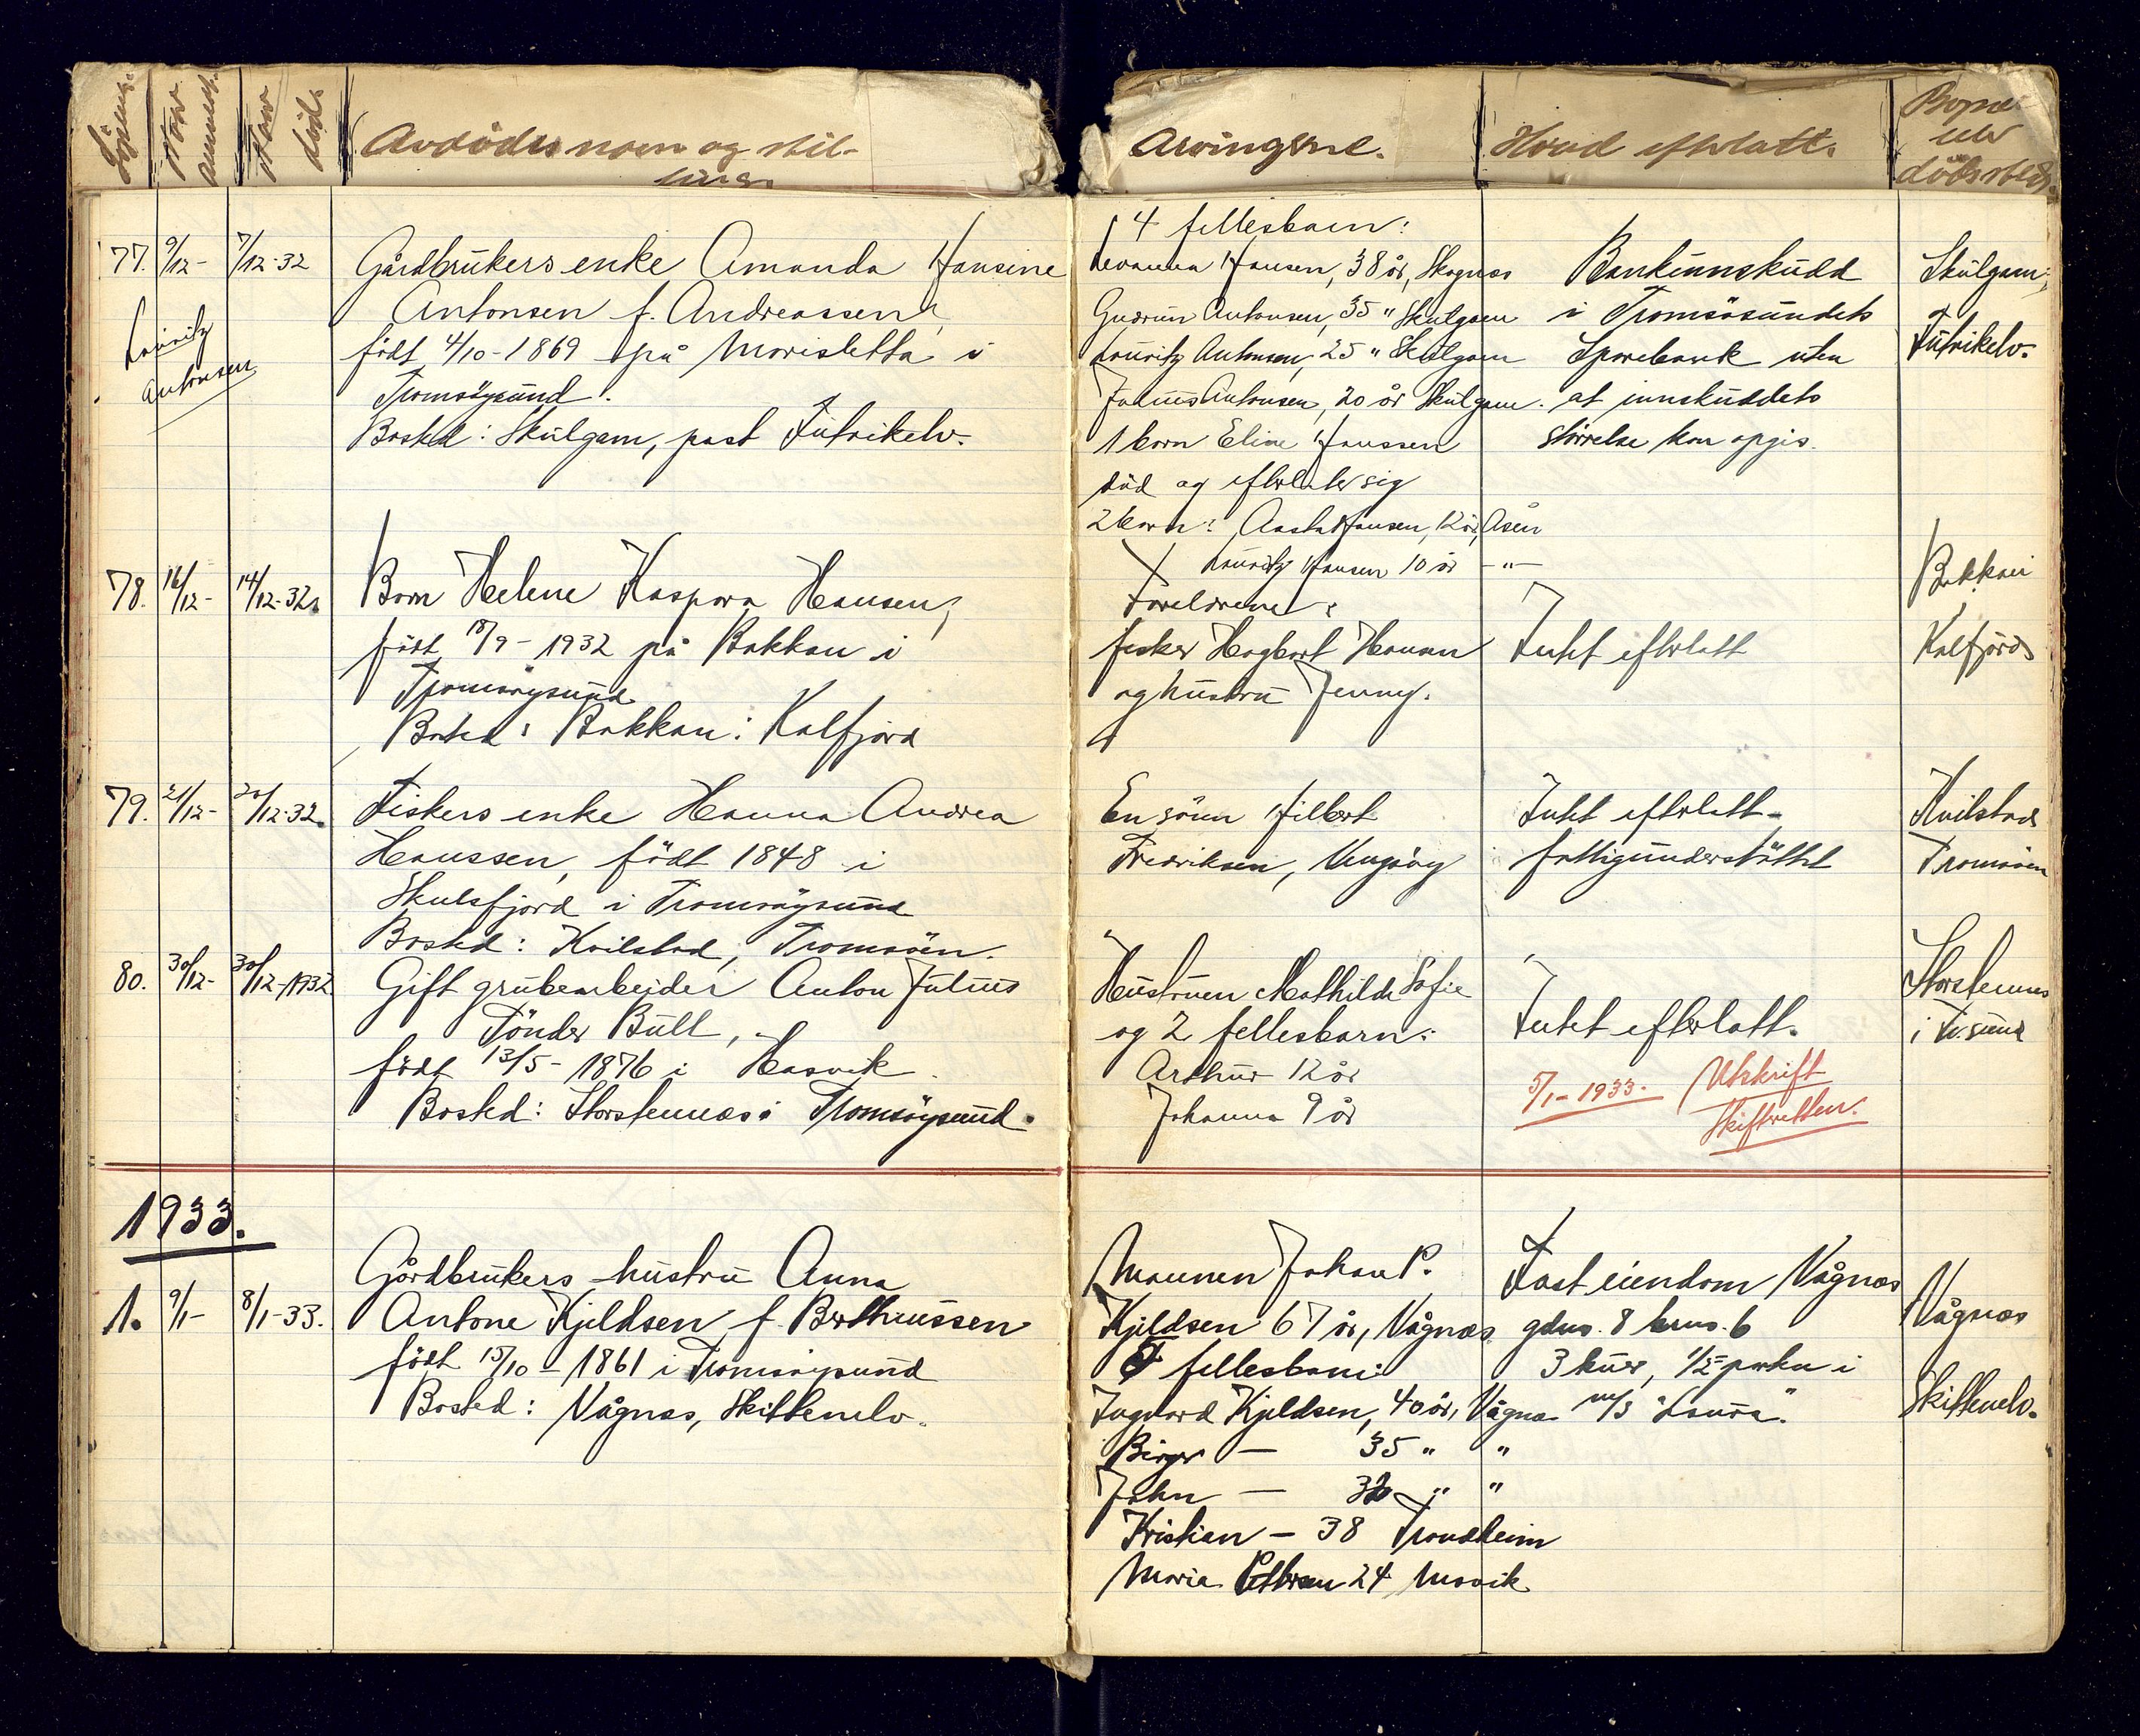 Löpenr.
Når anmeldt.
Når död.
Avdödes navn og stil-
ling.
Arvingene.
Hvad efterlatt.
Bopæl
eller
dödssted.
77. 9/12- 7/12-32
Gårdbrukers enke Amanda Hansine
Antonsen f. Andreassen,
født 4/10-1869 på Movisletta i
Tromsöysund.
Bosted: Skulgam, post Futrikelv.
Lauritz
Antonsen
4 fellesbarn:
Hansen, 38 år, Skognes
Gudrun Antonsen, 35 " Skulgam
Lauritz Antonsen, 25 " Skulgam
Julius Antonsen, 20 år Skulgam.
1 barn Eline Hanssen
död og efterlater sig
2 barn: Aasta Hansen, 12 år, Åsen
Lauritz Hansen 10 år -"-
Bankinnskudd
i Tromsösundets
Sparebank uten
at innskuddets
störrelse kan opgis.
Skulgam,
Futrikelv.
78. 16/12- 14/12-32.
Barn Helene Kaspara Hansen,
født 18/9-1932 på Bakkan i
Tromsöysund
Bosted: Bakkan: Kalfjord
Foreldrene:
fisker Hagbart Hansen
og hustru Jenny.
Intet efterlatt
Bakkan
Kalfjord
79. 21/12- 20/12-32.
Fiskers enke Hanna Andrea
Hanssen, födt 1848 i
Skulsfjord i Tromsöysund
Bosted: Kvilstad, Tromsöen.
En sönn Hilbert
Fredriksen, Vengsöy
Intet efterlatt-
fattigunderstöttet
Kvilstad
Tromsöen
80. 30/12- 30/12-1932
Gift grubearbeider Anton Julius
Tönder Bull,
födt 13/5-1876 i Hasvik.
Bosted: Storstennes i Tromsöysund.
Hustruen Mathilde Sofie
og 2 fellesbarn:
Arthur 12 år
Johanna 9 år
Intet efterlatt.
5/1-1933. Utskrift
Skifteretten.
Storstennes
i Tr.sund
1933.
1. 9/1- 8/1-33.
Gårdbrukers hustru Anna
Antone Kjeldsen f. Bertheussen
födt 15/10-1861 i Tromsöysund
Bosted: Vågnes, Skittenelv.
Mannen Johan P.
Kjeldsen 67 år, Vågnes
5 fellesbarn:
Ingvard Kjeldsen, 40 år, Vågnes
Birger — 35 " "
John — 32 " "
Kristian — 38 Trondheim
Maria Pettersen 24 Movik
Fast eiendom Vågnes
gdns. 8 brns. 6
3 kuer, 1/2-parten i
m/s "Laura".
Vågnes
Skittenelv.